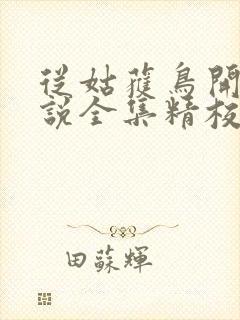 從姑蒦鳥開
說全集精校
田蘇輝